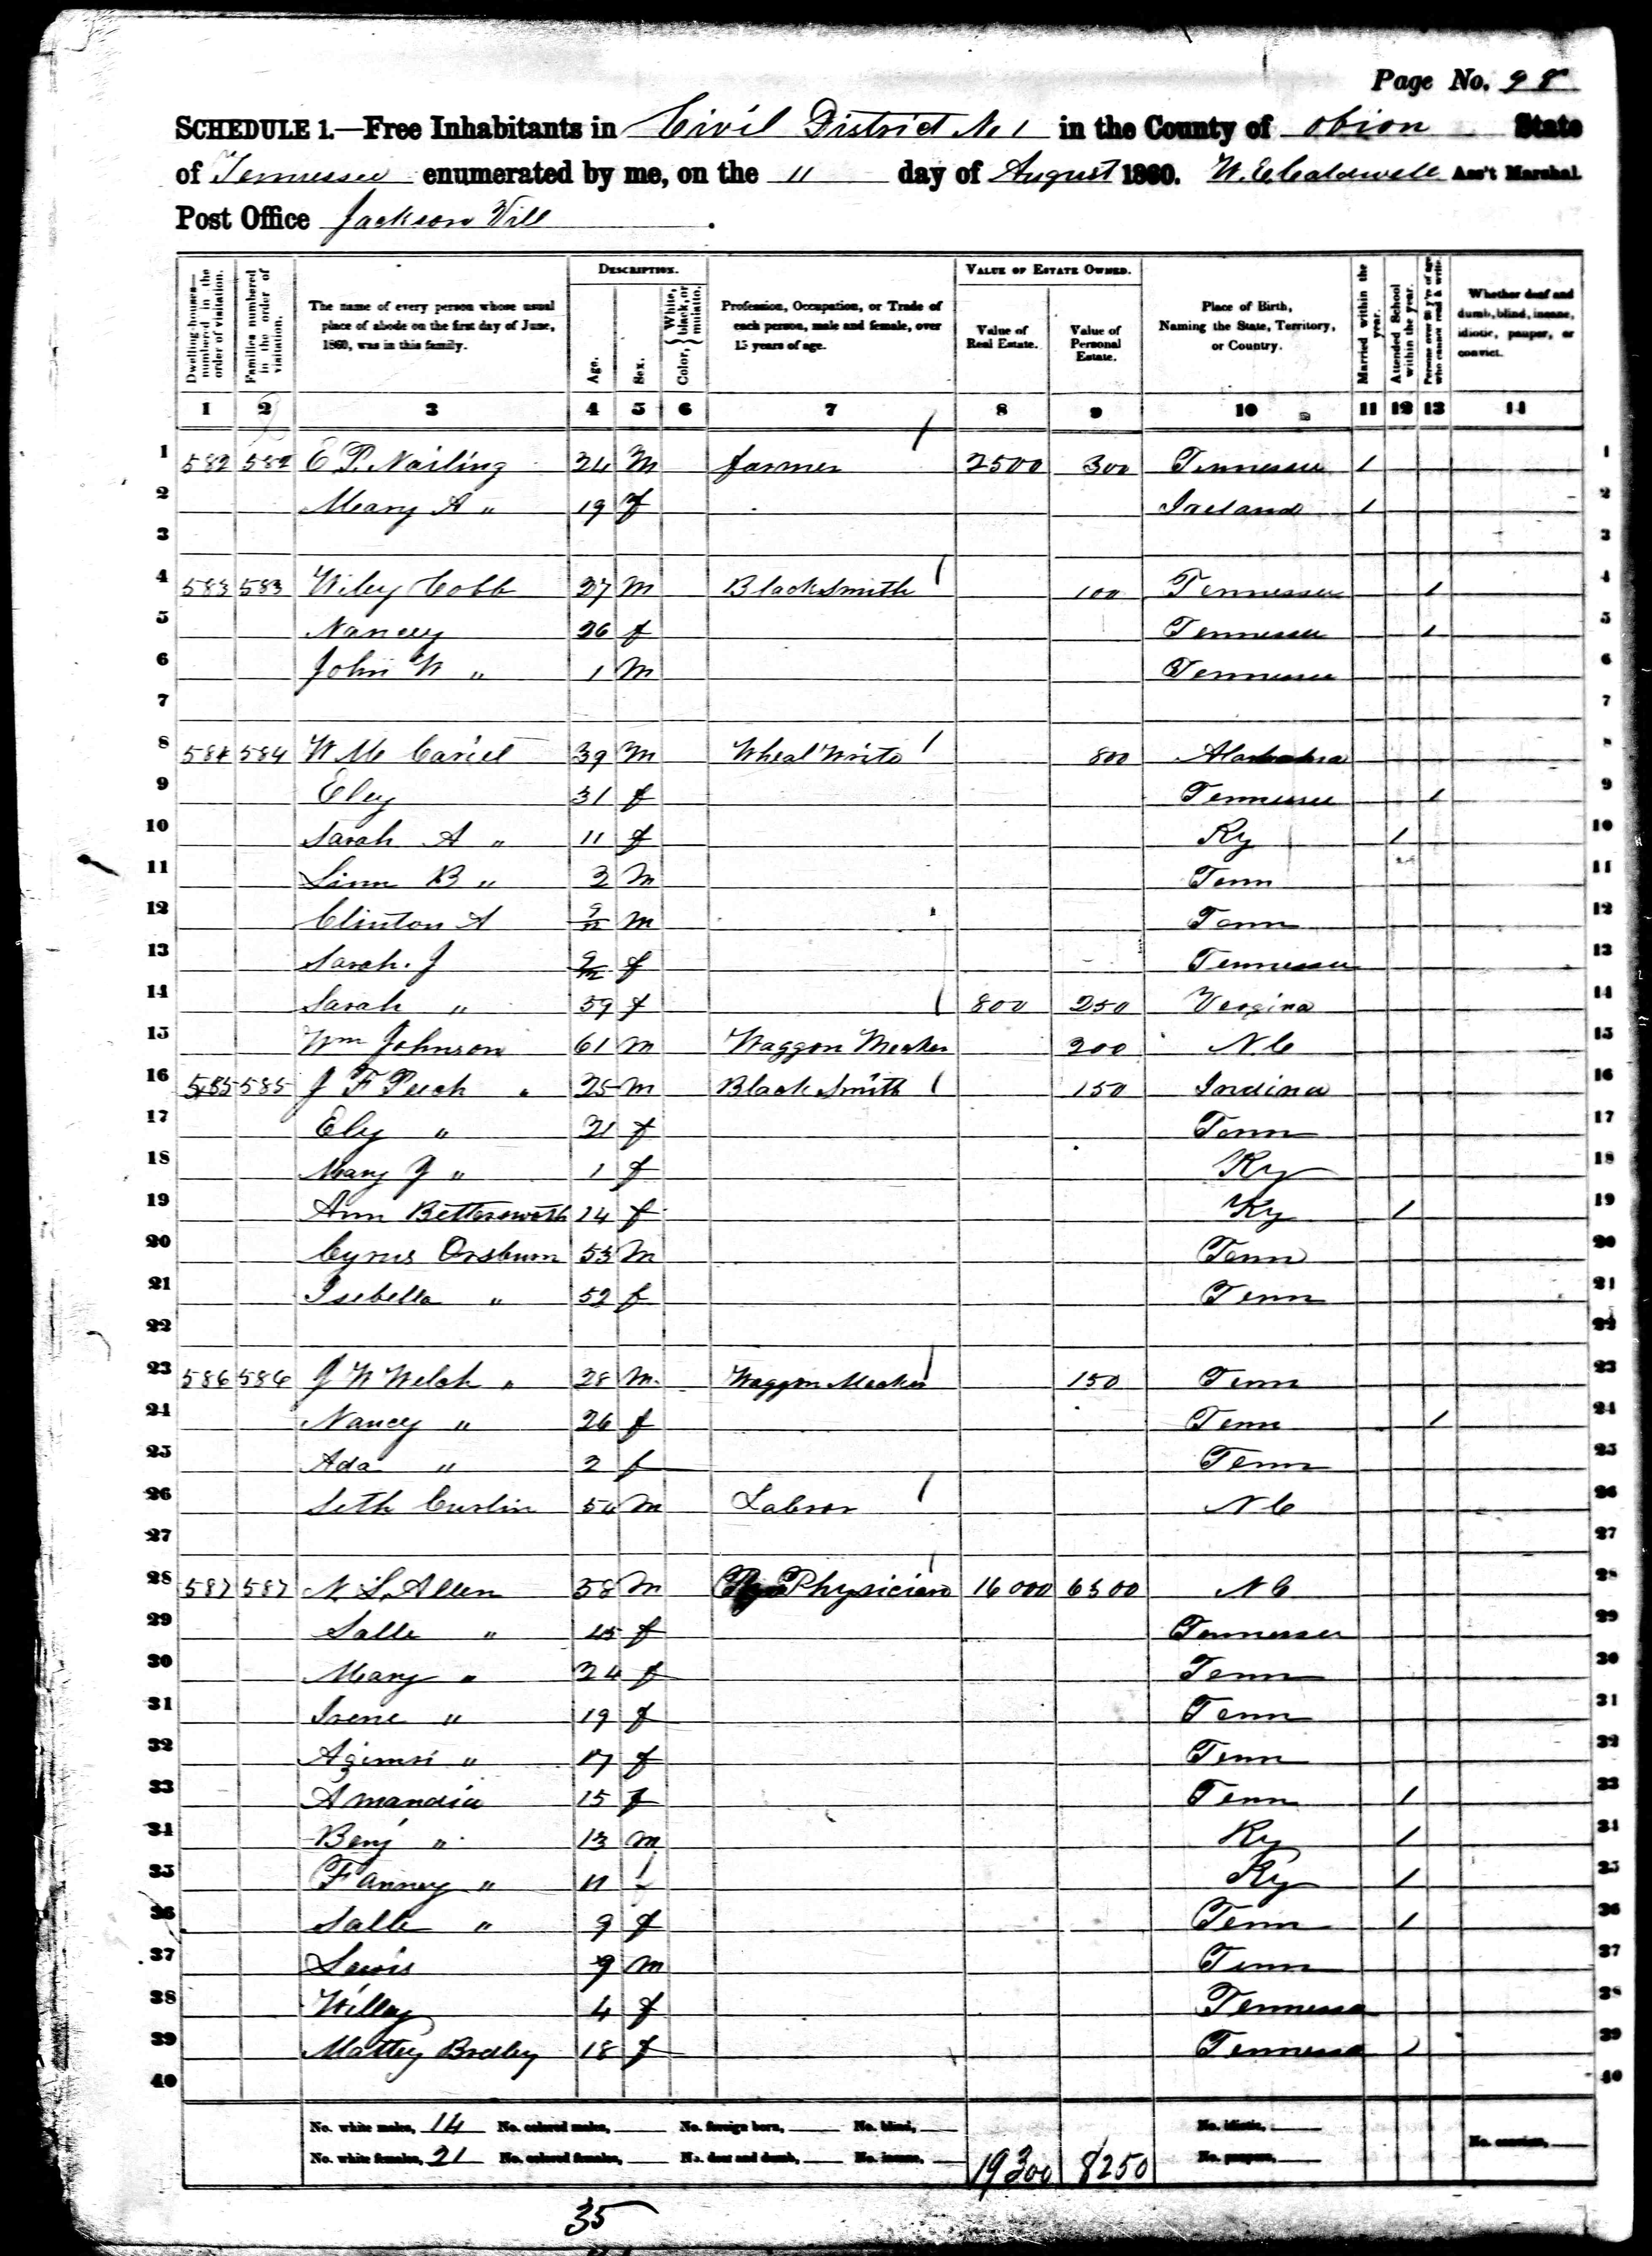 Page No. 98
SCHEDULE 1.—Free Inhabitants in Civil District No 1 in the County of obion State
of Tennessee enumerated by me, on the 11 day of August 1860. W. E. Caldwell Ass't Marshal.
Post Office Jackson Vill.
Dwelling-houses—numbered in the order of visitation.
Families numbered in the order of visitation.
The name of every person whose usual place of abode on the first day of June, 1860, was in this family.
DESCRIPTION.
Age.
Sex.
Color, { White, black, or mulatto.
Profession, Occupation, or Trade of each person, male and female, over 15 years of age.
VALUE OF ESTATE OWNED.
Value of Real Estate.
Value of Personal Estate.
Place of Birth, Naming the State, Territory, or Country.
Married within the year.
Attended School within the year.
Persons over 20 y'rs of age who cannot read & write.
Whether deaf and dumb, blind, insane, idiotic, pauper, or convict.
1 2 3 4 5 6 7 8 9 10 11 12 13 14
1 582 582 E P. Nailing 24 M farmer / 2500 300 Tennessee / 1
2 Meary A " 19 f Ireland / 2
3 3
4 583 583 Wiley Cobb 27 M BlackSmith / 100 Tennessee / 4
5 Nancey 26 f Tennessee / 5
6 John W " 1 M Tennessee 6
7 7
8 584 584 W Mc 39 M Wheal Write / 800 8
9 Eley 31 f Tennessee / 9
10 Sarah A " 11 f Ky / 10
11 B " 3 M Tenn 11
12 Clinton A 9/12 M Tenn 12
13 Sarah. J 9/12 f Tennessee 13
14 Sarah " 59 f / 800 250 Vergina 14
15 Wm Johnson 61 M Waggon Meaker 200 N.C 15
16 585 585 J F Peech " 25 M Black Smith / 150 Indina 16
17 Eley " 21 f Tenn 17
18 Mary J " 1 f Ky 18
19 Ann Bettersworth 14 f Ky / 19
20 Cyrus Orsburn 53 M Tenn 20
21 Isebella " 52 f Tenn 21
22 22
23 586 586 J W Welch " 28 M. Waggon Meaker / 150 Tenn 23
24 Nancy " 26 f Tenn / 24
25 Ada " 2 f Tenn 25
26 Seth Curlin 54 M Labror / N C 26
27 27
28 587 587 N. L. Allen 58 M Physician / 16000 6300 N C 28
29 Salle " 45 f Tennessee 29
30 Meary " 24 f Tenn 30
31 Irene " 19 f Tenn 31
32 " 17 f Tenn 32
33 Amandia 15 f Tenn / 33
34 Benj " 13 M Ky / 34
35 Fanney " 11 Ky / 35
36 Salle " 9 f Tenn / 36
37 Lewis 9 M Tenn 37
38 Willey 4 f Tennessee 38
39 Mattey Bradley 18 f Tennessee / 39
40 40
No. white males, 14 No. colored males, No. foreign born, No. blind, No. idiotic,
No. white females, 21 No. colored females, No. deaf and dumb, No. insane, 19300 8250 No. paupers, No. convicts,
35